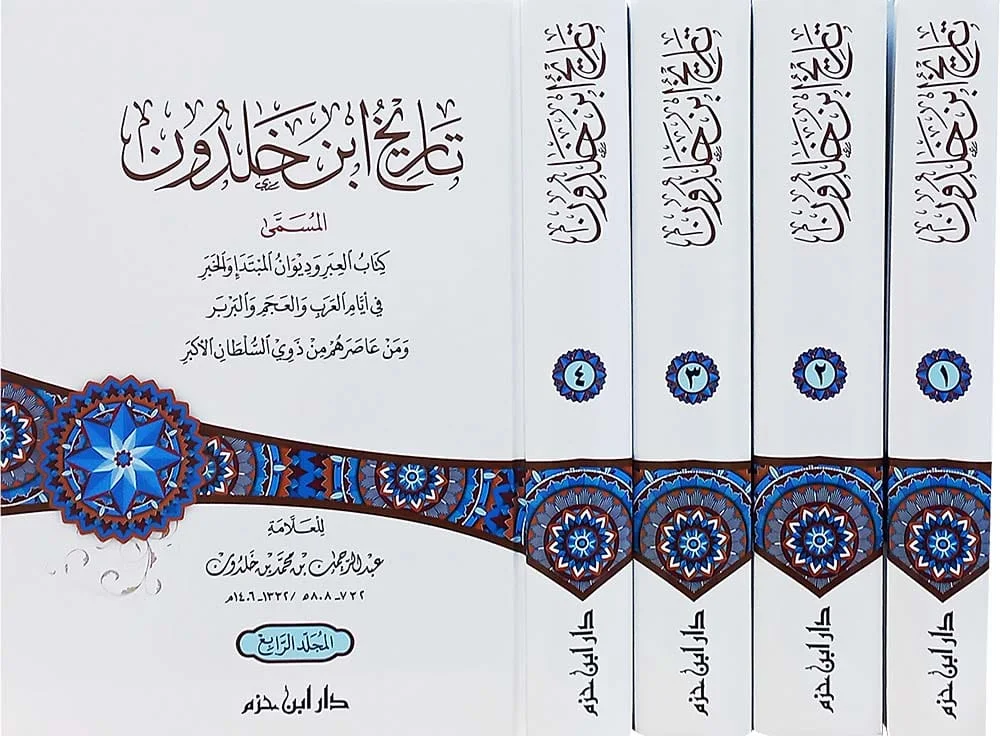 تَارِيخُ ابْن خَلدُون
المُسَمَّىٰ
كِتَابُ العِبَر وَدِيوَانُ المُبْتَدَإِ وَالخَبَر
فِي أيَّامِ العَرَبِ وَالعَجَمِ وَالبَرْبَر
وَمَنْ عَاصَرَهُمْ مِنْ ذَوِي السُّلْطَانِ الأَكْبَر
لِلعَلَّامَةِ
عبد الرحمٰن بن محمد بن خلدون
٧٣٢-٨٠٨هـ / ١٣٣٢-١٤٠٦م
المجَلّد الرَّابِع
دار ابن حزم
تَارِيخُ ابْن خَلدُون
٤
دار ابن حزم
تَارِيخُ ابْن خَلدُون
٣
دار ابن حزم
تَارِيخُ ابْن خَلدُون
٢
دار ابن حزم
تَارِيخُ ابْن خَلدُون
١
دار ابن حزم